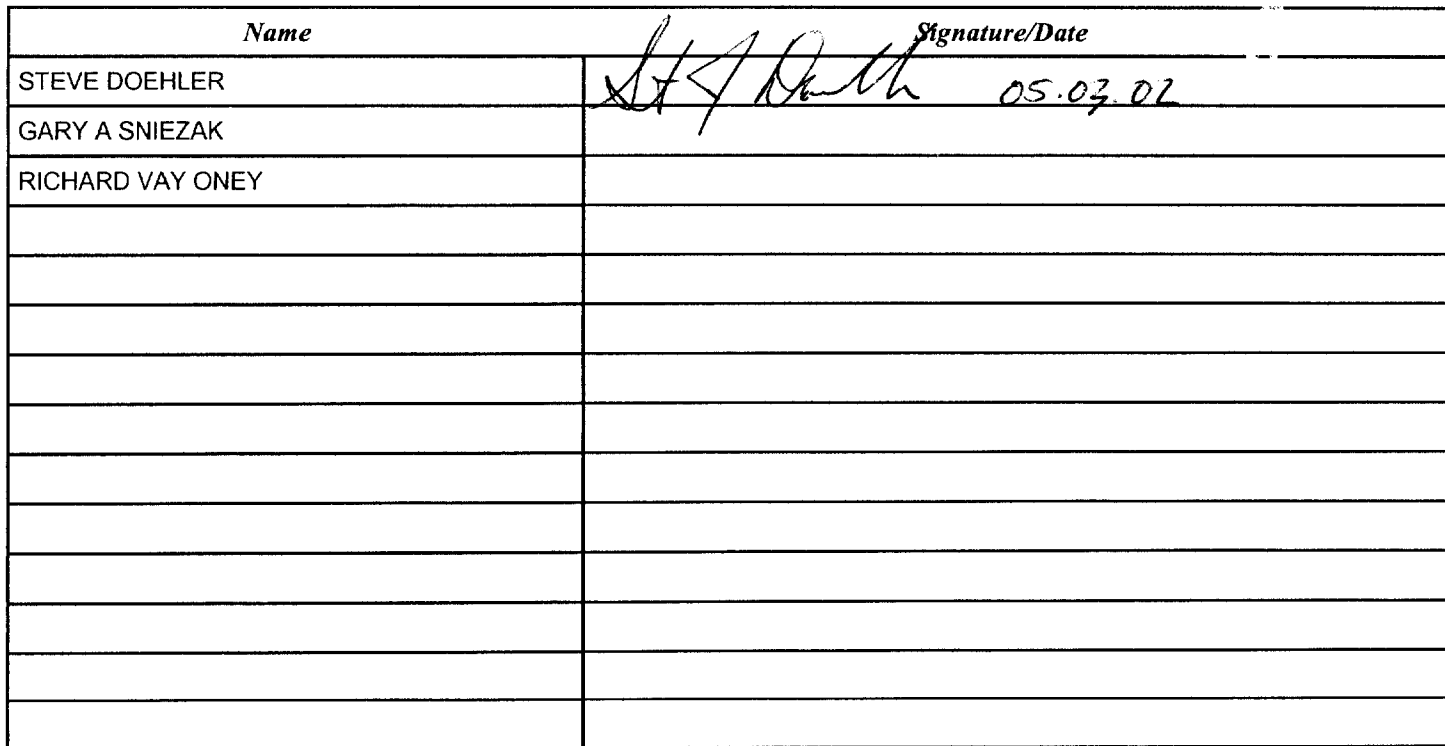 Name Signature/Date
STEVE DOEHLER 05.03.02
GARY A SNIEZAK
RICHARD VAY ONEY